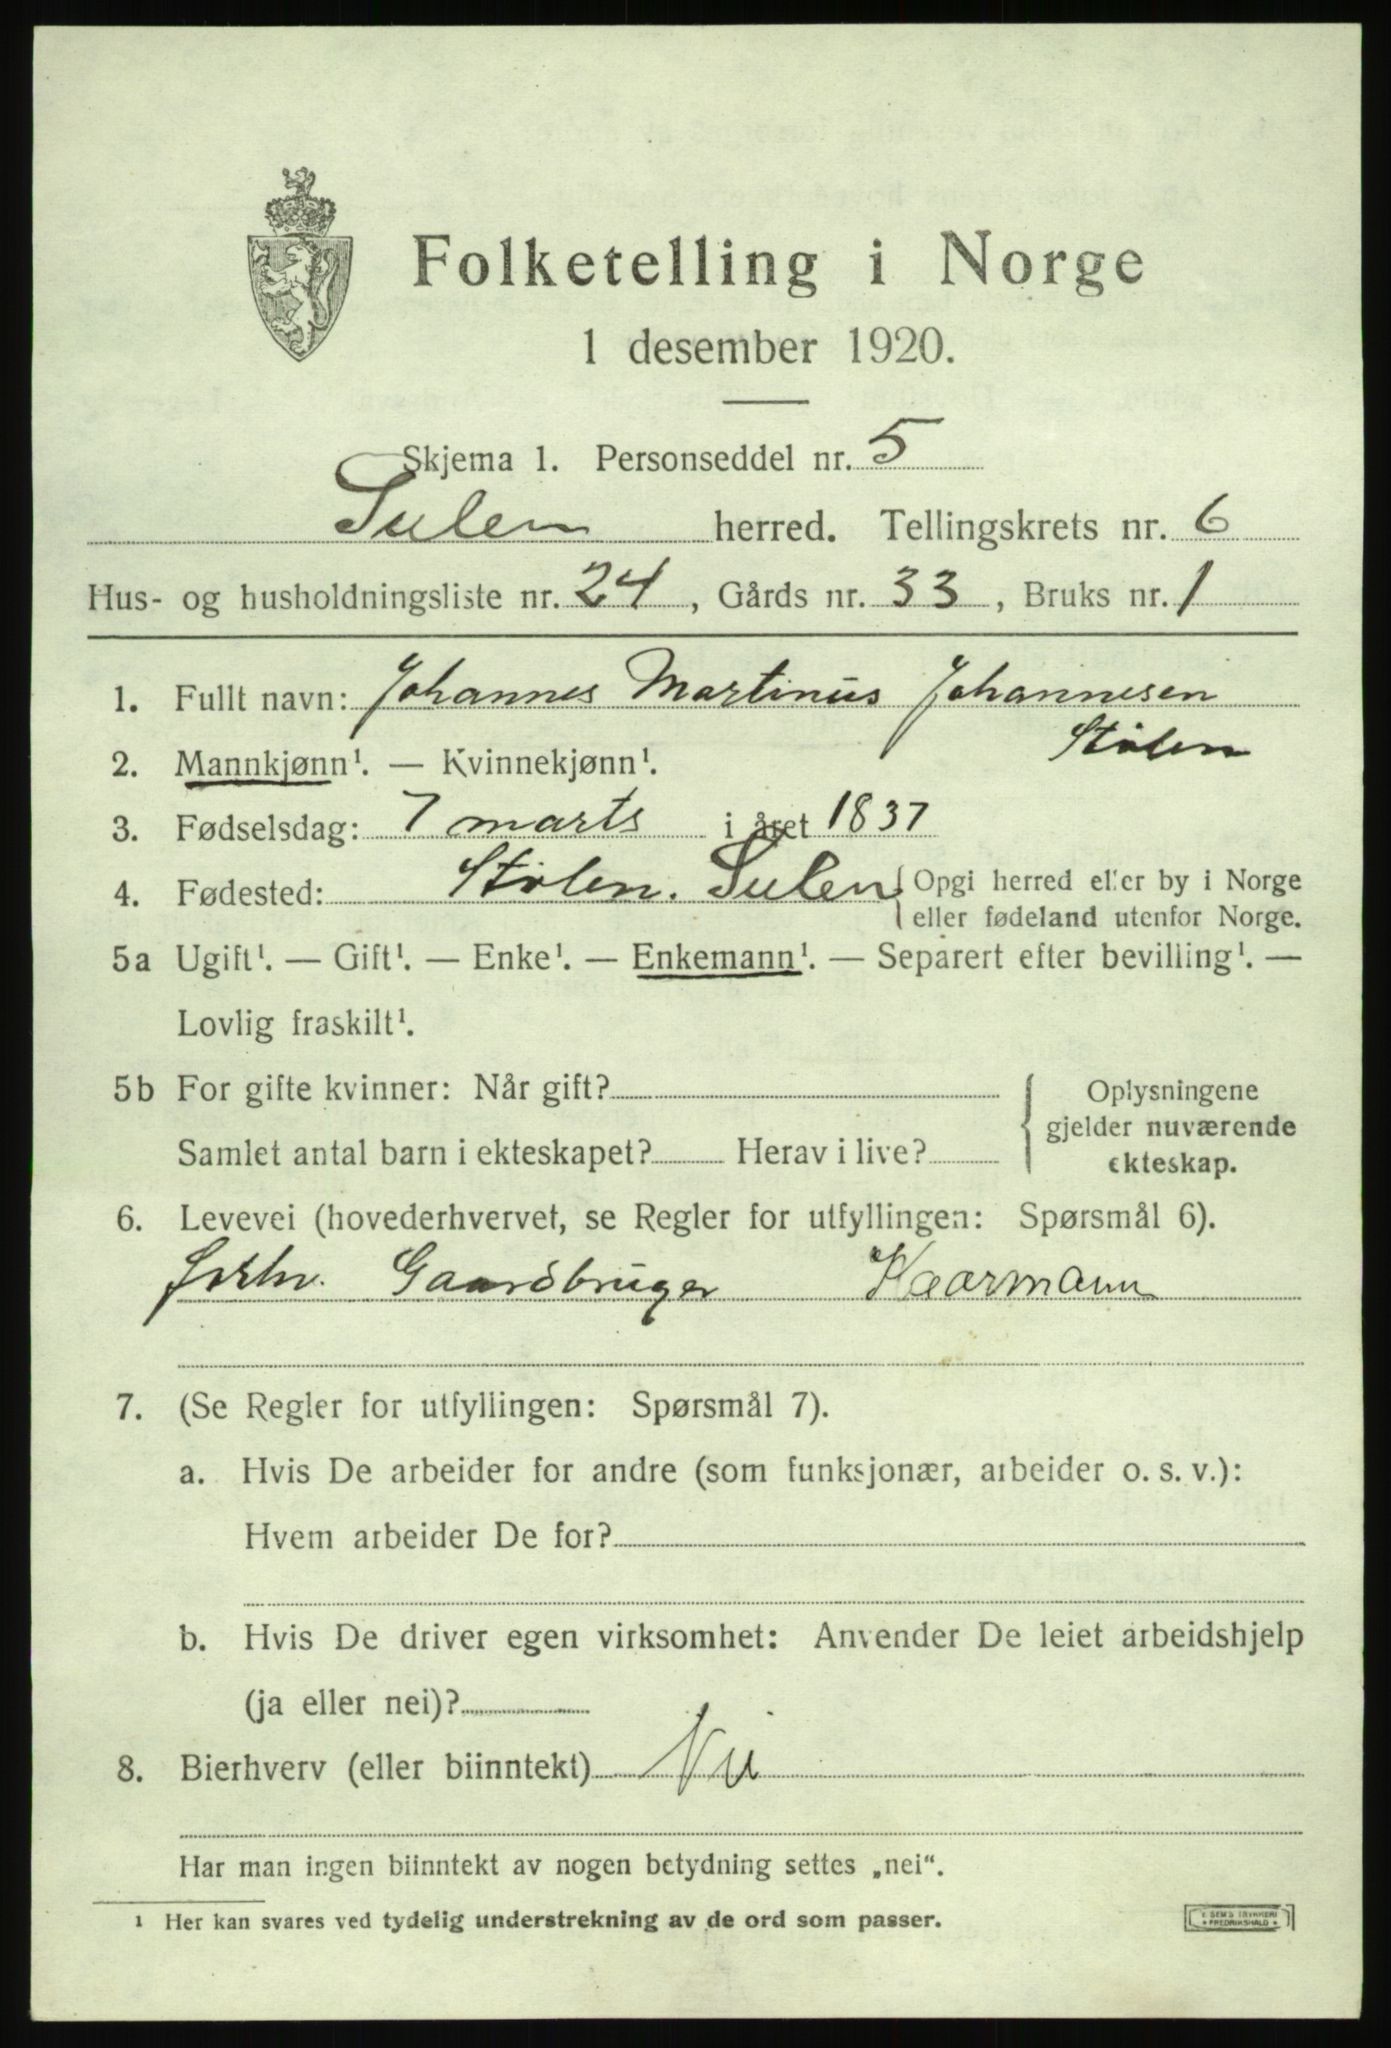 Folketelling i Norge
1 desember 1920.
Skjema 1. Personseddel nr. 5
Sulen herred. Tellingskrets nr. 6
Hus- og husholdningsliste nr. 24, Gårds nr. 33, Bruks nr. 1
1. Fullt navn: Johannes Martinus Johannesen
Stølen
2. Mannkjønn¹. — Kvinnekjønn¹.
3. Fødselsdag: 7 marts i året 1837
4. Fødested: Stølen. Sulen { Opgi herred eller by i Norge
eller fødeland utenfor Norge.
5a Ugift¹. — Gift¹. — Enke¹. — Enkemann¹. — Separert efter bevilling¹. —
Lovlig fraskilt¹.
5b For gifte kvinner: Når gift? { Oplysningene
gjelder nuværende
Samlet antal barn i ekteskapet? Herav i live?
ekteskap.
6. Levevei (hovederhvervet, se Regler for utfyllingen: Spørsmål 6).
Forhv. Gaardbruger Kaarmann
7. (Se Regler for utfyllingen: Spørsmål 7).
a. Hvis De arbeider for andre (som funksjonær, arbeider o. s. v.):
Hvem arbeider De for?
b. Hvis De driver egen virksomhet: Anvender De leiet arbeidshjelp
(ja eller nei)?
8. Bierhverv (eller biinntekt) Nei
Har man ingen biinntekt av nogen betydning settes „nei“.
¹ Her kan svares ved tydelig understrekning av de ord som passer.
E. SEMS TRYKKERI
• FREDRIKSHALD •